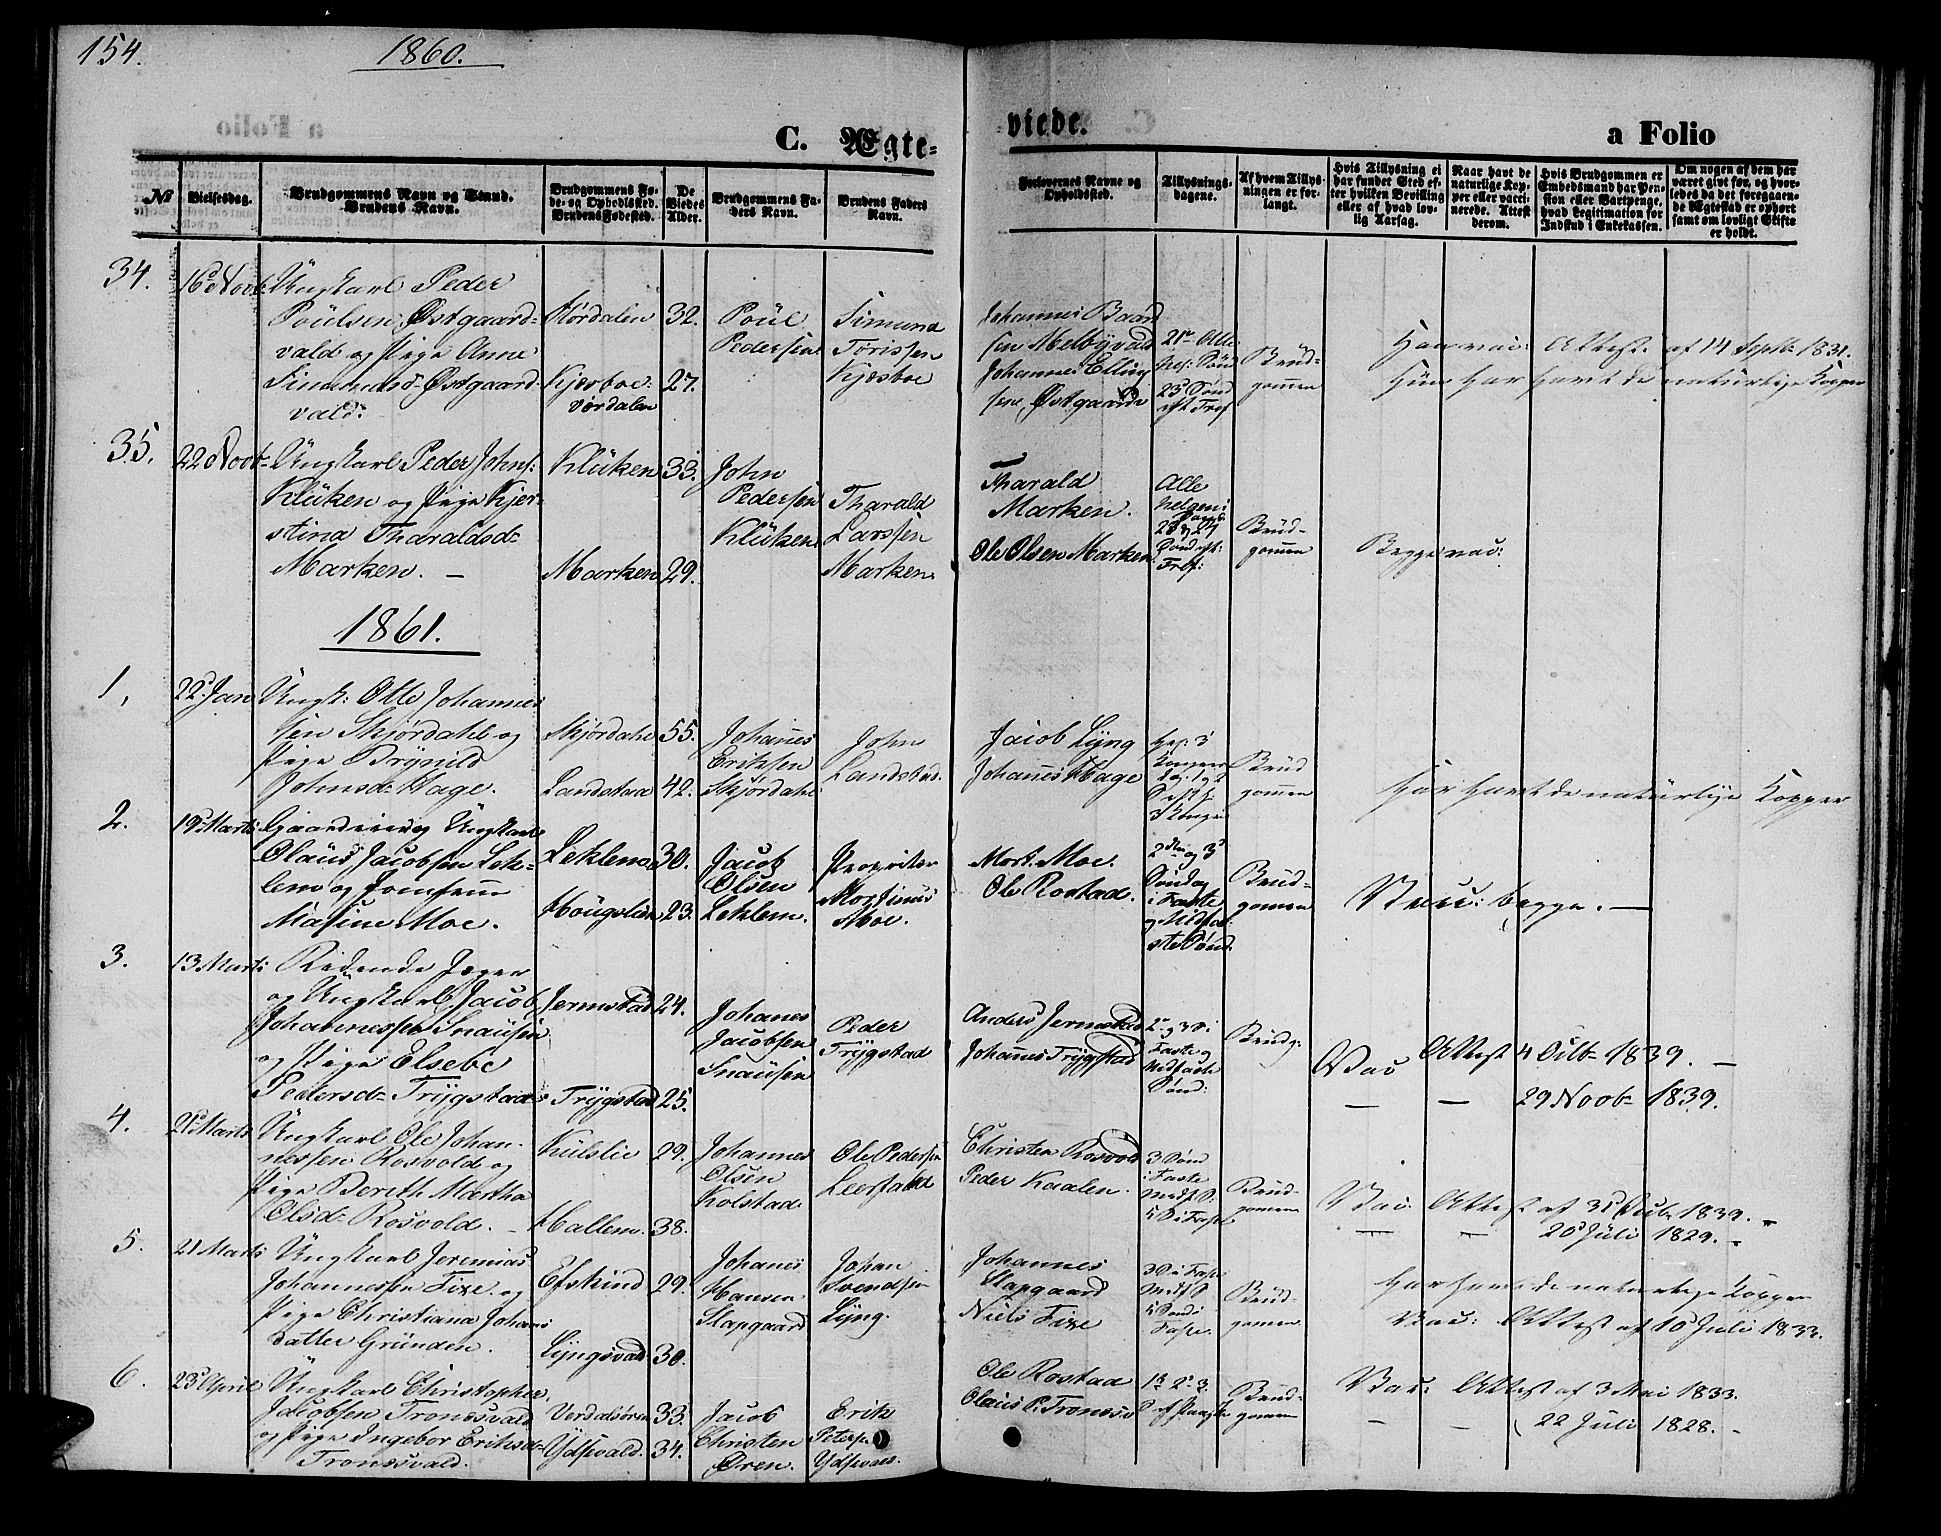 154.
1860.
C. Ægte-
viede.
a Folio
№
Vielsesdag.
Brudgommens Navn og Stand.
Brudens Navn.
Brudgommens Fø-
de- og Opholdssted.
Brudens Fødested.
De
Viedes
Alder.
Brudgommens Fa-
ders Navn.
Brudens Faders
Navn.
Forlovernes Navne og
Opholdssted.
Tillysnings-
dagene.
Af hvem Tillys-
ningen er for-
langt.
Hvis Tillysning ei
har fundet Sted ef-
ter hvilken Bevilling
eller af hvad lov-
lig Aarsag.
Naar havt de
naturlige Kop-
per eller vacci-
nerede. Attest
derom.
Hvis Brudgommen er
Embedsmand har Pen-
sion eller Vartpenge,
hvad Legitimation for
Indskud i Enkekassen.
Om nogen af dem har
været givt før, og hvor-
ledes da det foregaaen-
de Ægtestad er ophørt
samt om lovligt Skifte
er holdt.
34.
16 Novb.
Ungkarl Peder
Poulsen Østgaard-
vald og Pige Anne
Simundsd. Østgaard-
vald.
Størdalen
Kjesboe
Værdalen
32.
27.
Poul
Pedersen
Simund
Torissen
Kjesboe
Johannes Baard
sen Melbyvald
Johannes Elling
sen Østgaards
21de Alle
Hel: Sønd
23d Sønd
eft Tref
Brud-
gommen
Han vac: Attest af 14 Septb 1831.
Hun har havt de naturlige Kopper
35.
22 Novb.
Ungkarl Peder Johns:
Klüken og Pige Kjer-
stina Tharaldsd-
Marken. -
Klüken
Marken
33.
29.
John
Pedersen
Klüken
Tharald
Larssen
Marken
Tharald
Marken.
Ole Olsen Marken
Alle
helgens
23 & 24
Sønd eft:
Tref:
Brud-
gommen
Begge vac:
1861.
1.
22 Jan
Ungk: Olle Johannes
sen Skjørdahl og
Pige Brynild
Johnsd. Hage.
Skjørdahl
Landstad
55.
42.
Johannes
Eriksen
Skjørdahl
John
Landstad.
Jacob Lÿng
Johannes Hage
Brud
gommen
Har havt de naturlige Kopper
2.
19 Marts
Gaardeier og Ungkarl
Olaus Jacobsen Lek-
lem og Jomfrue
Masine Moe.
Leklem
Hougslien
30.
23.
Jacob
Olsen
Leklem.
Propritær
Mortinus
Moe.
Mort. Moe.
Ole Rostad.
2den og 3d
Søndag
i Faste
og Midfa-
ste Sønd.
Brud-
gommen
Vac: begge. —
3.
13 Marts
Ridende Jæger
og Ungkarl Jacob
Johannessen Snausen
og Pige Elsebe
Pedersd- Trÿgstad
Jermstad
Trÿgstad
24.
25.
Johanes
Jacobsen
Snausen
Peder
Trÿgstad
Anders Jermstad
Johannes Trÿgstad
2d og 3d i
Faste og
Midfaste
Sønd:
Brudg:
Vac Attest 4 Octb 1839. —
— — 29 Novb 1839.
4.
21 Marts
Ungkarl Ole Johan-
nessen Rosvold og
Pige Bereth Martha
Olsd- Rosvold. -
Kulslie
Hallem.
29.
38.
Johannes
Olsen
Kolstad
Ole Pedersen
Leerfald
Christen Rosvold
Peder Kaalen.
3 Sønd
i Faste
Midf S:
4 S i Faste
Brud-
gommen
Vac: Attest af 31 Octb 1839. -
— — 20 Juli 1829. -
5.
21 Marts
Ungkarl Jeremias
Johannessen Fixe. og
Pige Christiana Johans
datter Grunden.
Efskind
Lÿngsvald
29.
30.
Johanes
Hansen
Slapgaard
Johan
Svendsen
Lÿng.
Johannes
Slapgaard
Niels Fixe
3 S i Faste
Midf S
4 Sønd i
Faste.
Brud-
gommen
Har havt de naturlige Kopper
Vac: Attest af 10 Juli 1833.
6.
23 April
Ungkarl Christopher
Jacobsen Tronesvald
og Pige Ingebor Eriksd-
Tronesvald.
Verdalsøren
Ydsevald.
33.
34.
Jacob
Christen
Øren.
Erik
Peterse
Ydsevald.
Ole Rostad
Olaus P. Tronesv
1d 2d 3
S ef Paaske
Brud-
gommen
Vac: Attest af 3 Mai 1833.
— — 22 Juli 1828. -